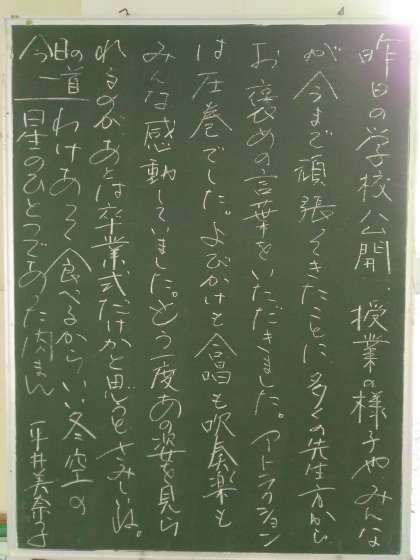 昨日の学校公開、授業の様子やみんな
が今まで頑張ってきたことに、多くの先生方から
お褒めの言葉をいただきました。アトラクション
は圧巻でした。よびかけも合唱も吹奏楽も
みんな感動していました。もう一度あの姿を見ら
れるのがあとは卒業式だけかと思うとさみしいね。
今日の一首
わけあって食べるからいい冬空の
星のひとつであった肉まん
平井美奈子